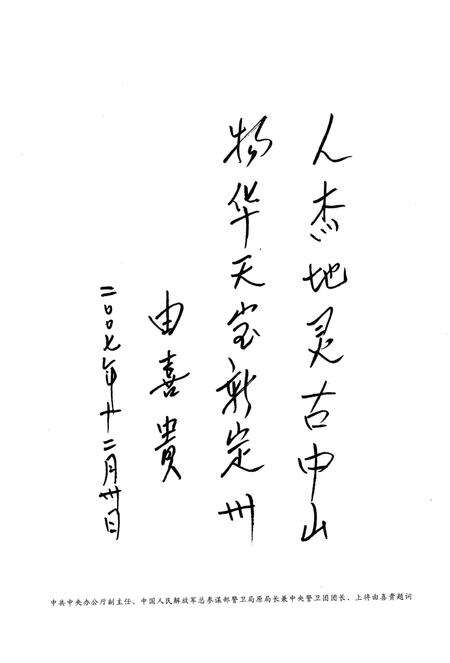 人杰地灵古中山
物华天宝新定州
由喜贵
二〇〇七年十二月卅日
中共中央办公厅副主任、中国人民解放军总参谋部警卫局原局长兼中央警卫团团长、上将由喜贵题词